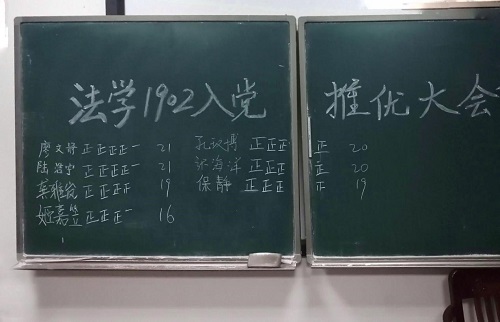 法学1902入党 推优大会
廖文婷 正正正正一 21 孔玫博 正正正正 20
陆 正正正正一 21 海洋 正正正正 20
莫雅 正正正正 19 保静 正正正正 19
姬嘉笠 正正正一 16